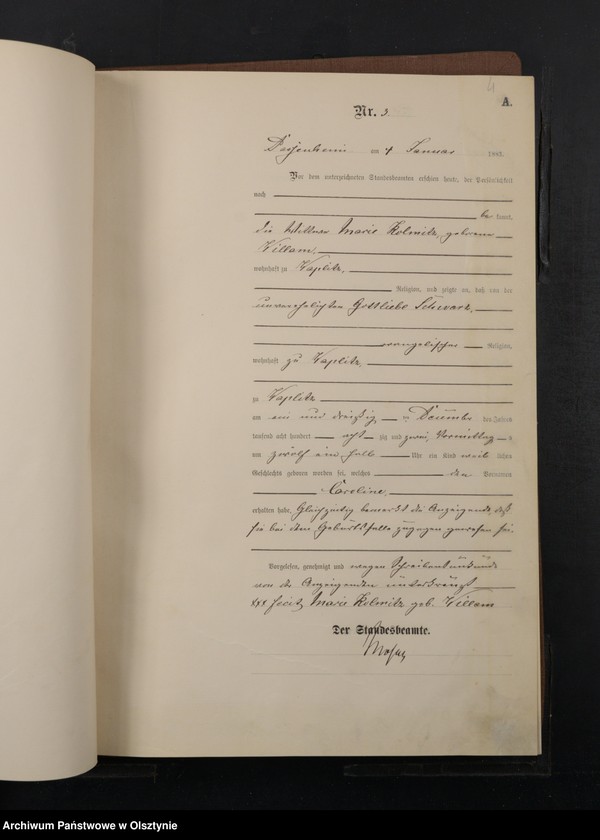 4
A.
Nr. 3
am 4 Januar 1883.
Vor dem unterzeichneten Standesbeamten erschien heute, der Persönlichkeit
nach
be kannt,
die Wittwe Marie Kolmitz, geborene
Willam,
wohnhaft zu Waplitz,
Religion, und zeigte an, daß von der
unverehelichten Gottliebe Schwarz,
evangelischer Religion,
wohnhaft zu Waplitz,
zu Waplitz
am ein und dreißig ten December des Jahres
tausend acht hundert acht zig und zwei, Vormittag s
um zwölf ein halb Uhr ein Kind weib lichen
Geschlechts geboren worden sei, welches den Vornamen
Caroline,
erhalten habe. Gleichzeitig bemerkt die Anzeigende, daß
sie bei dem Geburtsfalle zugegen gewesen sei.
Vorgelesen, genehmigt und wegen Schreibensunkunde
von der Anzeigenden unterkreuzt
xxx fecit Marie Kolmitz geb. Willam
Der Standesbeamte.
Archiwum Państwowe w Olsztynie